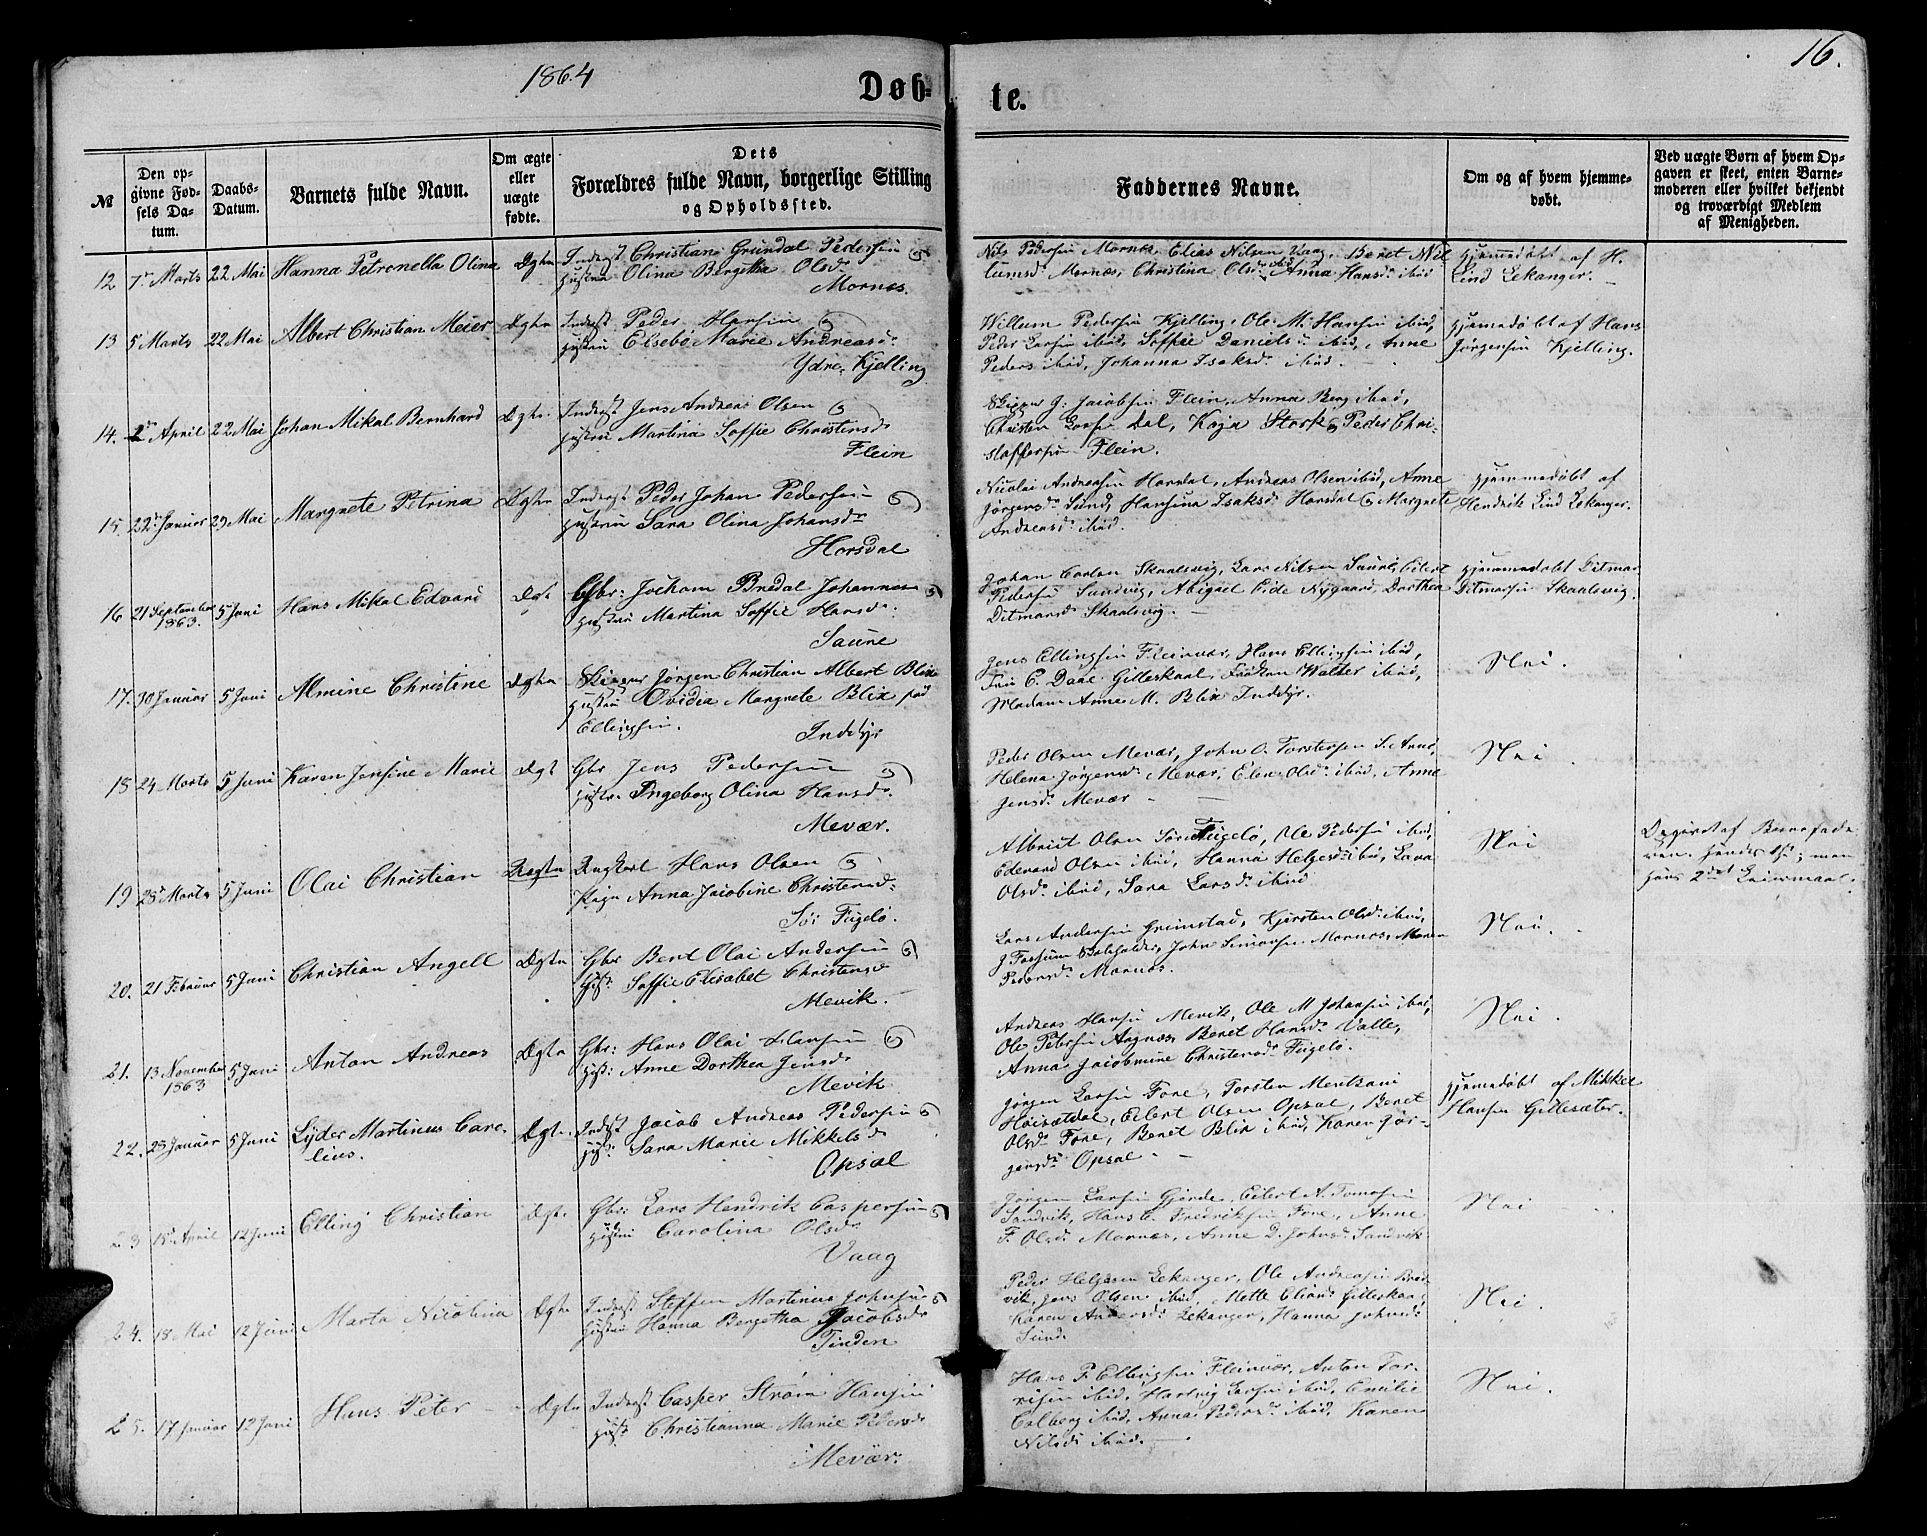 1864
16.
Døb-
te.
№
Den op-
givne Fød-
sels Da-
tum.
Daabs-
Datum.
Barnets fulde Navn.
Om ægte
eller
uægte
fødte.
Dets
Forældres fulde Navn, borgerlige Stilling
og Opholdssted.
Faddernes Navne.
Om og af hvem hjemme-
døbt.
Ved uægte Børn af hvem Op-
gaven er skeet, enten Barne-
moderen eller hvilket bekjendt
og troværdigt Medlem
af Menigheden.
12 7de Marts 22 Mai Hanna Petronella Olina Ægte
Inderst Christian Grundal Pedersen
Hustru Olina Bergitha Olsdr
Mornes.
Nils Pedersen Mornes, Elias Nilsen Vaag, Beret Nil
lumsdr Mornes, Christina Olsdr ibid Anna Hansdr ibid
Hjemmedøbt af H.
Lind Lekanger.
13 5 Marts 22 Mai Albert Christian Meier Ægte
Inderst Peder Hansen
Hustru Elsebø Marie Andreasdr
Ydre Kjelling
Willum Pedersen Kjelling, Ole M. Hansen ibid,
Peder Larsen ibid, Soffie Danielsdr ibid, Anne
Peders ibid, Johanna Isaksdr ibid.
Hjemmedøbt af Hans
Jørgensen Kjelling.
14. 2de April 22 Mai Johan Mikal Bernhard Ægte
Inderst Jens Andreas Olsen
Hustru Martina Soffie Christensdr
Flein
Skipper J. Jacobsen Flein, Anna Berg ibid,
Christen Larsen Dal, Kaja Stork, Peder Chri-
stoffersen Flein.
15. 22de Januar 29 Mai Margrete Petrina Ægte
Inderst Peder Johan Pedersen
Hustru Sara Olina Johansdr
Horsdal
Nicolai Andreasen Horsdal, Andreas Olsen ibid, Anne
Jørgensdr Sund, Hansina Isaksdr Horsdal & Margrete
Andreasdr ibid.
Hjemmedøbt af
Hendrik Lind Lekanger.
16 21 September 1863. 5 Juni Hans Mikal Edvard Ægte
Gbr: Jochom Bredal Johannes
Hustru Martina Soffie Hansdr
Saune
Johan Carlsen Skaalsvig, Lars Nilsen Saune, Eilert
Pedersen Sundvig, Abigael Eide Nygaard, Dorthea
Ditmarsdr Skaalsvig.
Hjemmedøbt Ditmar
Ditmarsen Skaalsvig.
17. 30 Januar 5 Juni Almine Christine Ægte
Skipper Jørgen Christian Albert Blix
Hustru Ovidia Margrete Blix fød
Ellingsen.
Inddyr
Jens Ellingsen Fleinvær, Hans Ellingsen ibid,
Frue C. Daae Gilleskaal, Frøken Walter ibid,
Madam Anne M. Blix Inddyr.
Nei.
18 24 Marts 5 Juni Karen Jensine Marie Ægt
Gbr Jens Pedersen
Hustru Ingeborg Olina Hansdr.
Mevær.
Peder Olsen Mevær, John O. Torstensen S. Arnø,
Helena Jørgensdr Mevær, Elen Olsdr ibid, Anne
Jensdr Mevær
Nei.
19 25de Marts 5 Juni Olai Christian Uægte
Ungkarl Hans Olsen
Pige Anna Jacobine Christensdr
Sør Fugelø.
Albriet Olsen Sør Fugelø, Ole Pedersen ibid,
Edvard Olsen ibid, Hanna Helgesdr ibid, Lava
Olsdr ibid, Sara Larsdr ibid
Nei
Opgivet af Barnefade-
ren. hendes 1ste; men
hans 2det Leiermaal.
20. 21 Februar 5 Juni Christian Angell Ægte
Gbr Bent Olai Andersen
Hust: Soffie Elisabet Christensdr
Mevik.
Lars Andersen Grimstad, Kjersten Olsdr ibid,
John Simonsen Mornes, Maren
Pedersdr Mornes.
Nei.
21. 13 November 1863 5 Juni Anton Andreas Ægte
Gbr: Hans Olai Hansen
Hust: Anne Dorthea Jensdr
Mevik
Andreas Hansen Mevik, Ole M Johansen ibid,
Ole Petersen Aagnes, Beret Hansdr Valle,
Anna Jacobmine Christensdr Fugelø.
Nei.
22. 25 Januar 5 Juni Lyder Martinus Care-
lius. Ægte.
Inderst Jacob Andreas Pedersen
Hust: Sara Marie Mikkelsdr
Opsal
Jørgen Larsen Fore, Torsten Mentzoni
Høisetdal, Eilert Olsen Opsal, Beret
Olsdr Fore, Beret Blix ibid, Karen Jør-
gensdr Opsal.
Hjemmedøbt af Mikkel
Hansen Gillesæter.
23 15de April 12 Juni Elling Christian Ægte.
Gbr: Lars Hendrik Caspersen
Hustru Carolina Olsdr
Vaag
Jørgen Larsen Gjørde, Eilert A. Tomasen
Sandvik, Hans C. Fredriksen Fore, Anne
F. Olsdr Mornes, Anne D. Johnsdr Sandvik
Nei
24. 18 Mai 12 Juni Marta Nicolina Ægte
Inderst Steffen Martinus Johnsen
Hustru Hanna Bergetha Jacobsdr
Tinden
Peder Helgesen Lekanger, Ole Andreasen Bred-
vik, Jens Olsen ibid, Mette Eliasd Gilleskaal,
Karen Andersdr Lekanger, Hanna Johnsdr
Sund.
Nei.
25. 17 Januar 12 Juni Hans Peter Ægte
Inderst Casper Strøm Hansen
Hust: Christianna Marie Pedersdr
Mevær.
Hans P. Ellingsen Fleinvær, Anton Tor-
risen ibid, Hartvig Larsen ibid, Emilie
Colberg ibid, Anna Pedersdr ibid, Karen
Nilsdr ibid.
Nei.